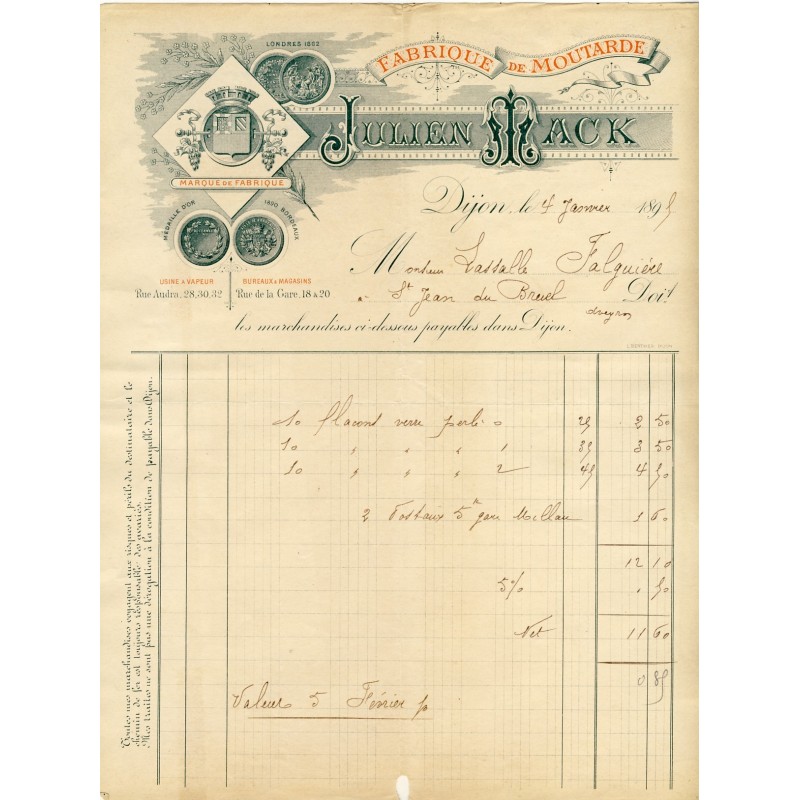 LONDRES 1862
FABRIQUE DE MOUTARDE
JULIEN MACK
MARQUE DE FABRIQUE
MÉDAILLE D'OR
1890 BORDEAUX
Dijon, le 4 Janvier 1895
Monsieur Lassalle Falguière
USINE A VAPEUR
BUREAUX & MAGASINS
Rue Audra, 28, 30, 32
Rue de la Gare, 18 & 20
à St Jean du Breuil Doit
Aveyron
les marchandises ci-dessous payables dans Dijon.
Toutes mes marchandises voyagent aux risques et périls du destinataire et le
chemin de fer est toujours responsable des avaries.
Mes traites ne sont pas une dérogation à la condition de payable dans Dijon.
10 flacons verre perlé 0 25 2 50
10 " " " 1 35 3 50
10 " " " 2 45 4 50
2 Postaux 5k gare Millau 1 60
12 10
5% , 50
Net 11 60
0 85
Valeur 5 Février p